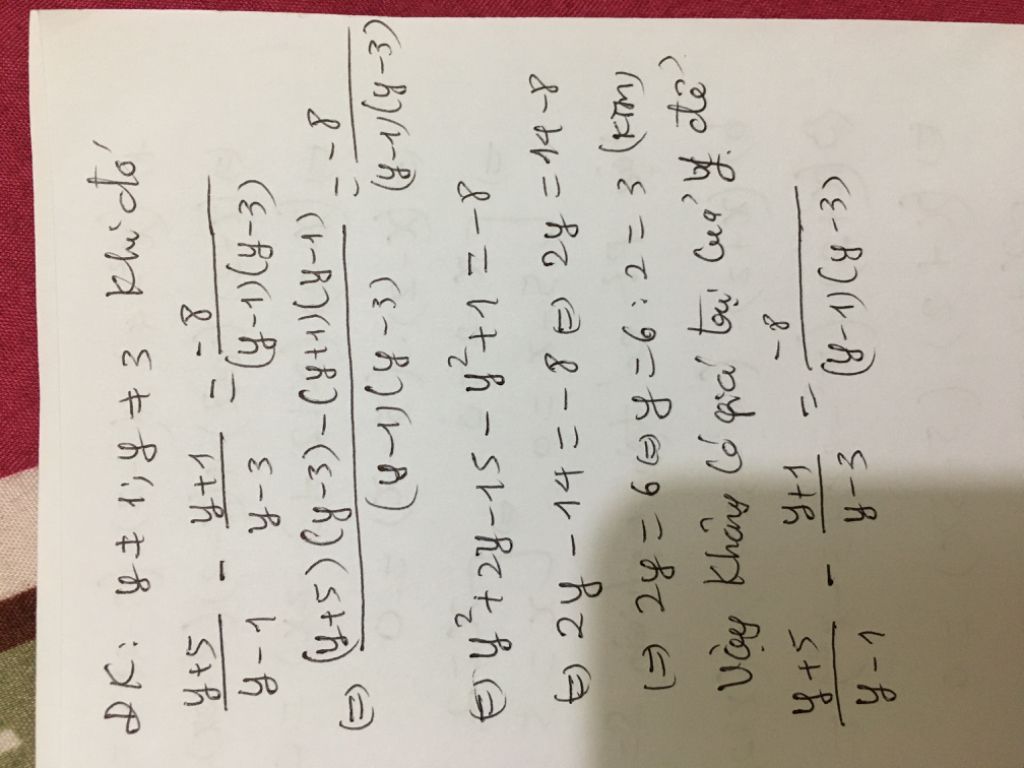 ĐK: y ≠ 1; y ≠ 3 khi đó
(y+5)/(y-1) - (y+1)/(y-3) = -8/((y-1)(y-3))
(=) ((y+5)(y-3)-(y+1)(y-1))/((y-1)(y-3)) = -8/((y-1)(y-3))
(=) y²+2y-15-y²+1=-8
(=) 2y-14=-8 (=) 2y=14-8
(=) 2y=6 (=) y=6:2=3 (KTM)
Vậy không có giá trị của y để
(y+5)/(y-1) - (y+1)/(y-3) = -8/((y-1)(y-3))